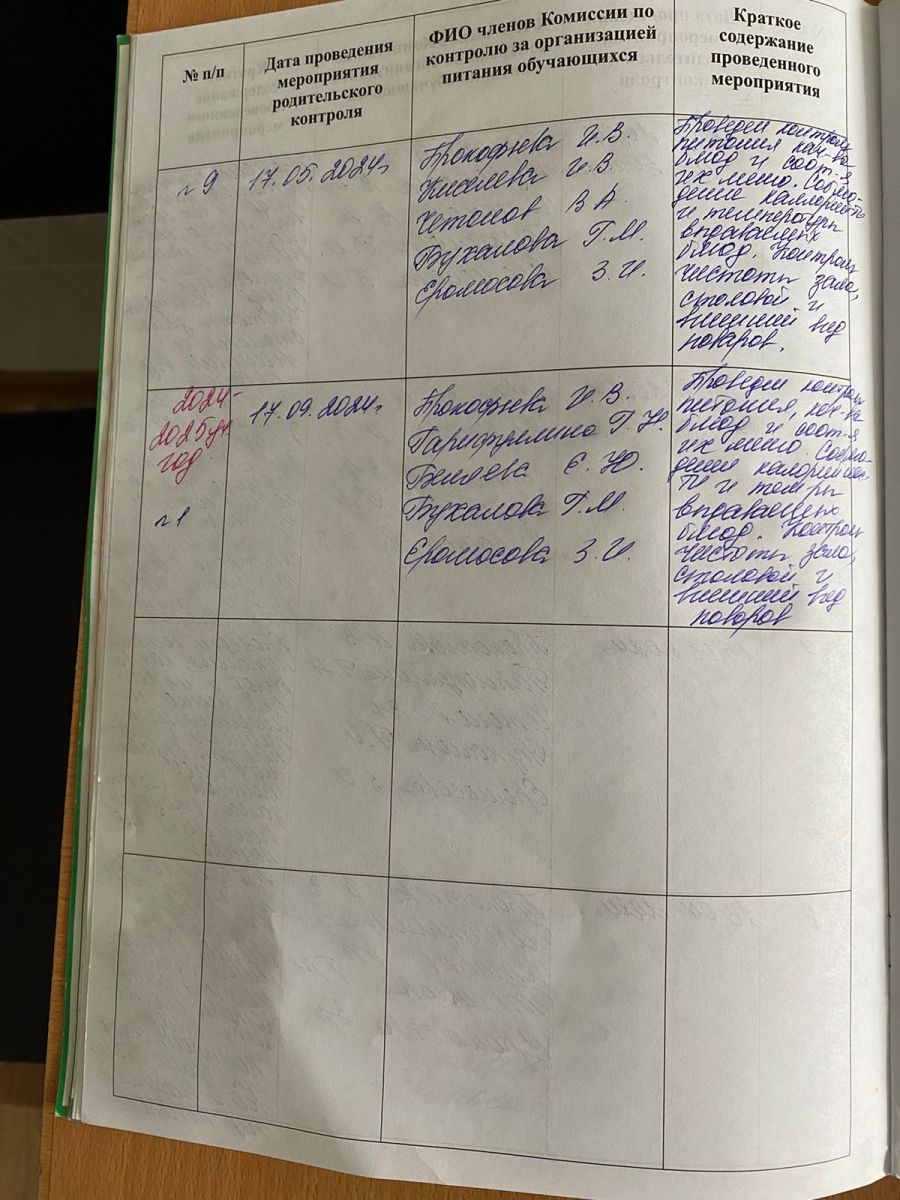 № п/п
Дата проведения
мероприятия
родительского
контроля
ФИО членов Комиссии по
контролю за организацией
питания обучающихся
Краткое
содержание
проведенного
мероприятия
№9
17.05.2024г
Прокофьева И.В.
Киселева И.В.
Бухалова Г.М.
Еромосова З.И.
Проведен контроль
питания кач-ва
блюд и соот-я
их меню. Соблю-
дение каллорийность
и температуры
выдаваемых
блюд. Контроль
чистоты зала,
столовой и
внешний вид
поваров.
2024-
2025 уч.
год
№1
17.09.2024г
Прокофьева И.В.
Гарифуллина Г.Н.
Беляева Е.Ю.
Бухалова Г.М.
Еромосова З.И.
Проведен контроль
питания, кач-ва
блюд и соот-я
их меню. Соблю-
дение калорийнос-
ти и темп-ры
выдаваемых
блюд. Контроль
чистоты зала,
столовой и
внешний вид
поваров